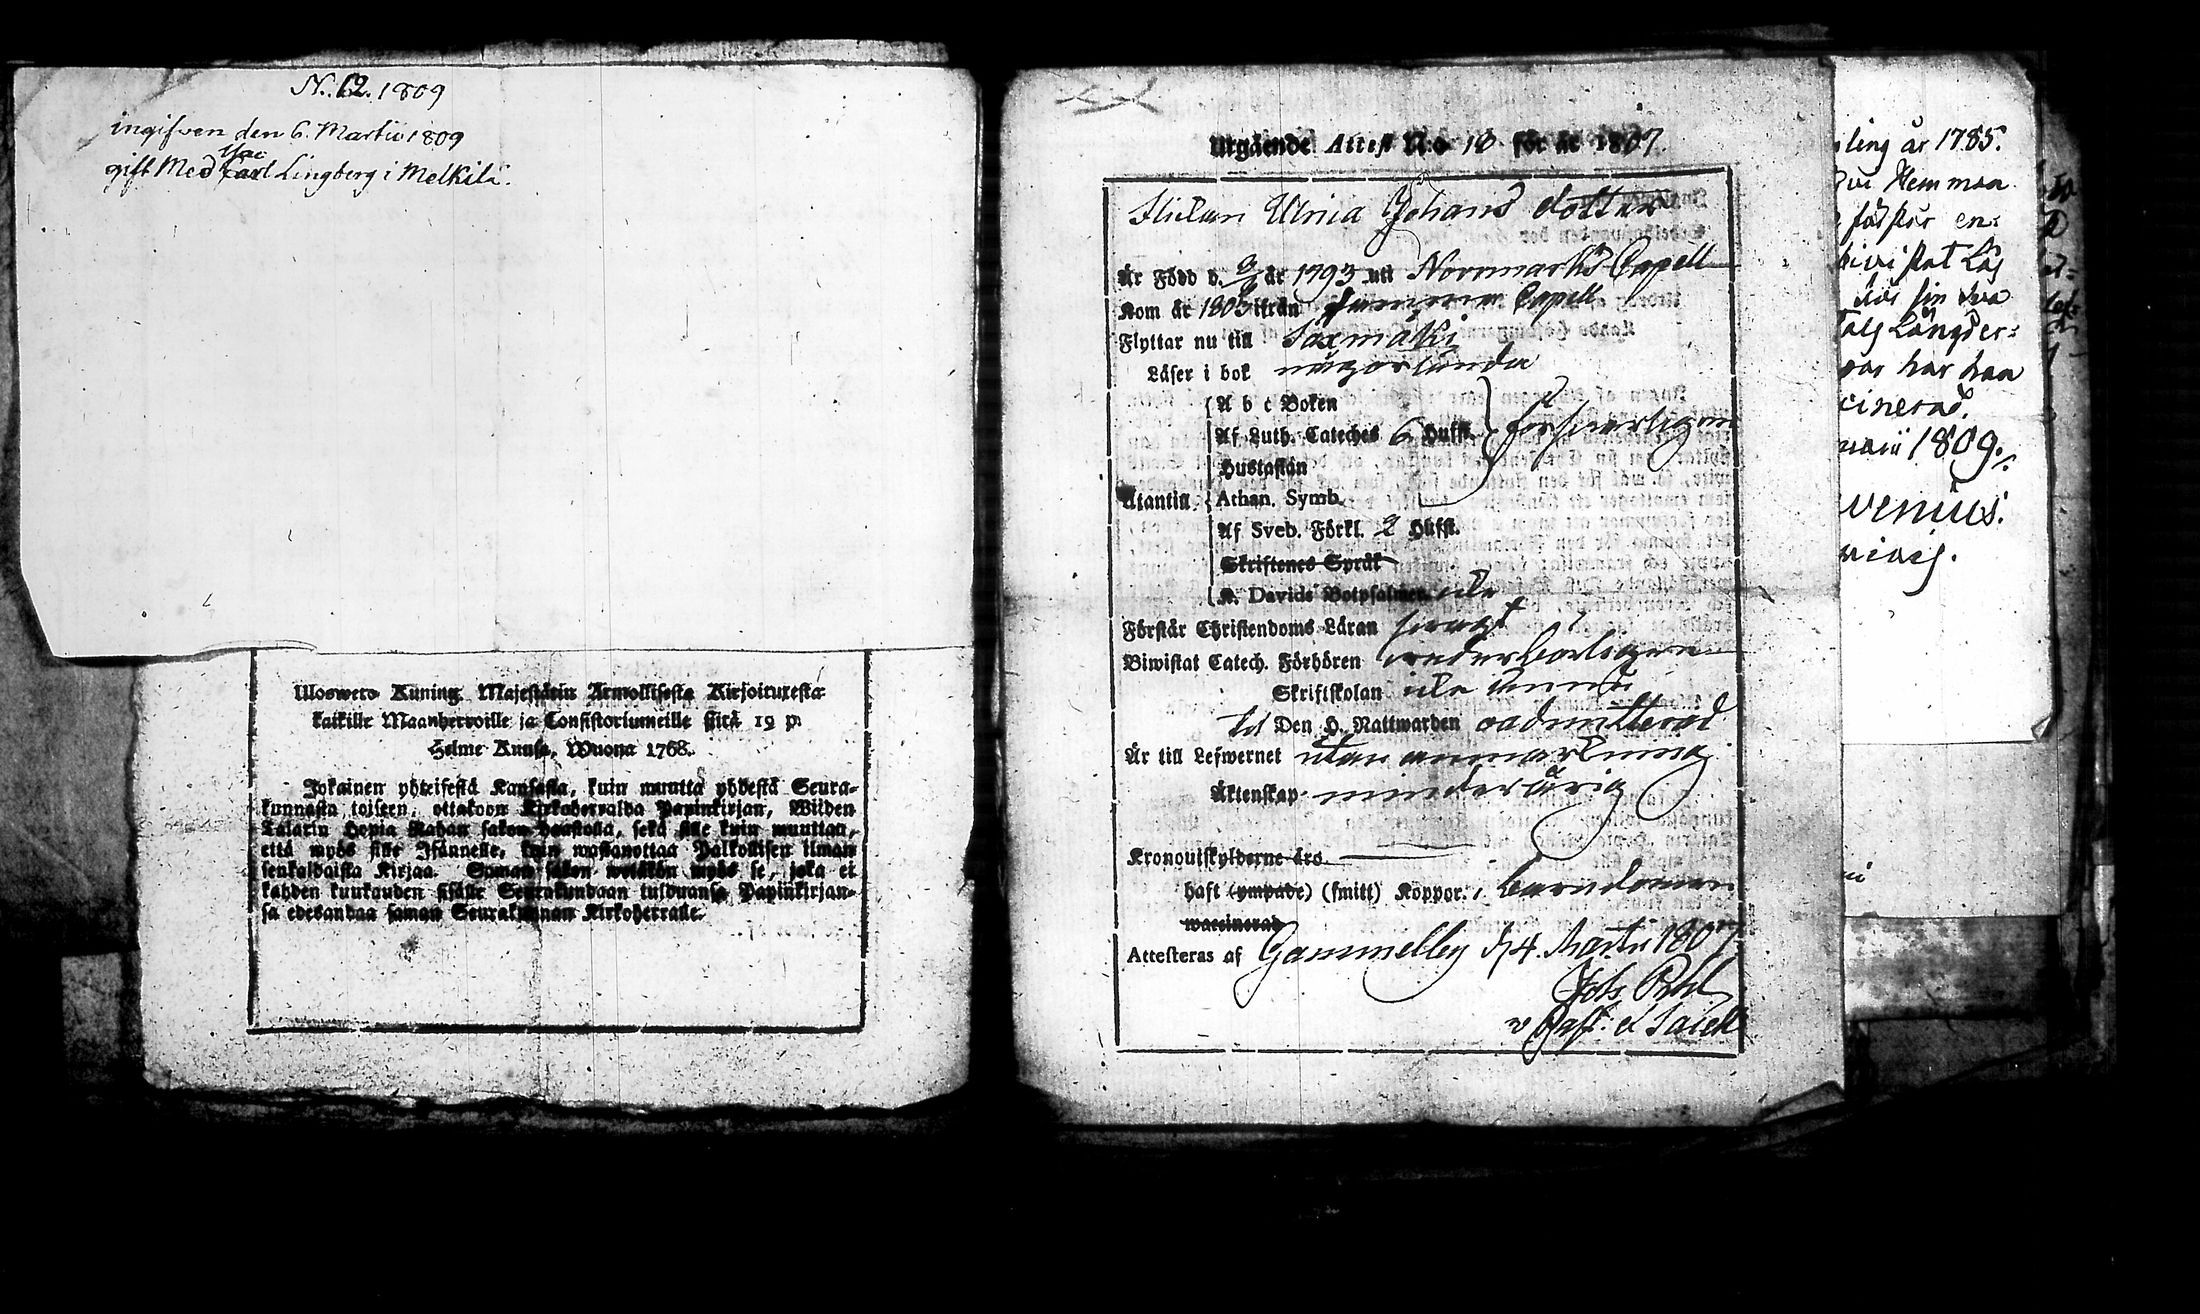 N:. 12. 1809
ingifven den 6. Martii 1809
gift Med Carl Lingberg i Melkilä.
Ulosweto Kuning. Majestätin Armollisesta Kirjoituxesta
kaikille Maanherroille ja Consistoriumeille siitä 19 p.
Helme Kuusa, Wuona 1768.
Jokainen yhteisestä Kansasta, kuin muutta yhdestä Seura-
kunnasta toiseen, ottakoon Kirkoherralda Papinkirjan, Wiiden
Talarin Hopia Rahan sakon haastolla, sekä sille kuin muuttan,
että myös sille Isännelle, kuin wastanottaa Palkollisen ilman
senkaldaista Kirjaa. Saman sakon wetäkön myös se, joka ei
kahden kuukauden sisälle Seurakundaan tulduansa Papinkirjan-
sa edesandaa saman Seurakunnan Kirkoherralle.
Utgående Attest N:o 18 för år 1807.
Flickan Ulrica Johans dotter
Är Född d. år 1793 uti Norrmarks Capell
Kom år 1805 ifrån samma Capell
Flyttar nu till Saxmäki
Läser i bok någorlunda
A b c Boken
Af Luth. Cateches 6 Hufst. försvarligen
Hustaflan
Utantill Athan. Symb.
Af Sveb. Förkl. 2 Hufst.
Skriftenes Språk
K. Davids Botpsalmer. icke
Förstår Christendoms Läran svagt
Biwistat Catech. Förhören vederbörligen
Skriftskolan icke ännu
til Den H. Nattwarden oadmitterad
Är till Lefwernet utan anmärkning
Äktenskap minderårig
Kronoutskylderne äro
haft (ympade) (smitt) Koppor. i barndomen
waccinerad
Attesteras af Gammelby d. 4. Martii 1807
v Past: & Sacell
ling år 1785.
Hemman
en:
bivistat Läs
sin
Längder:
har han
cinerad.
uarii 1809.
venius.